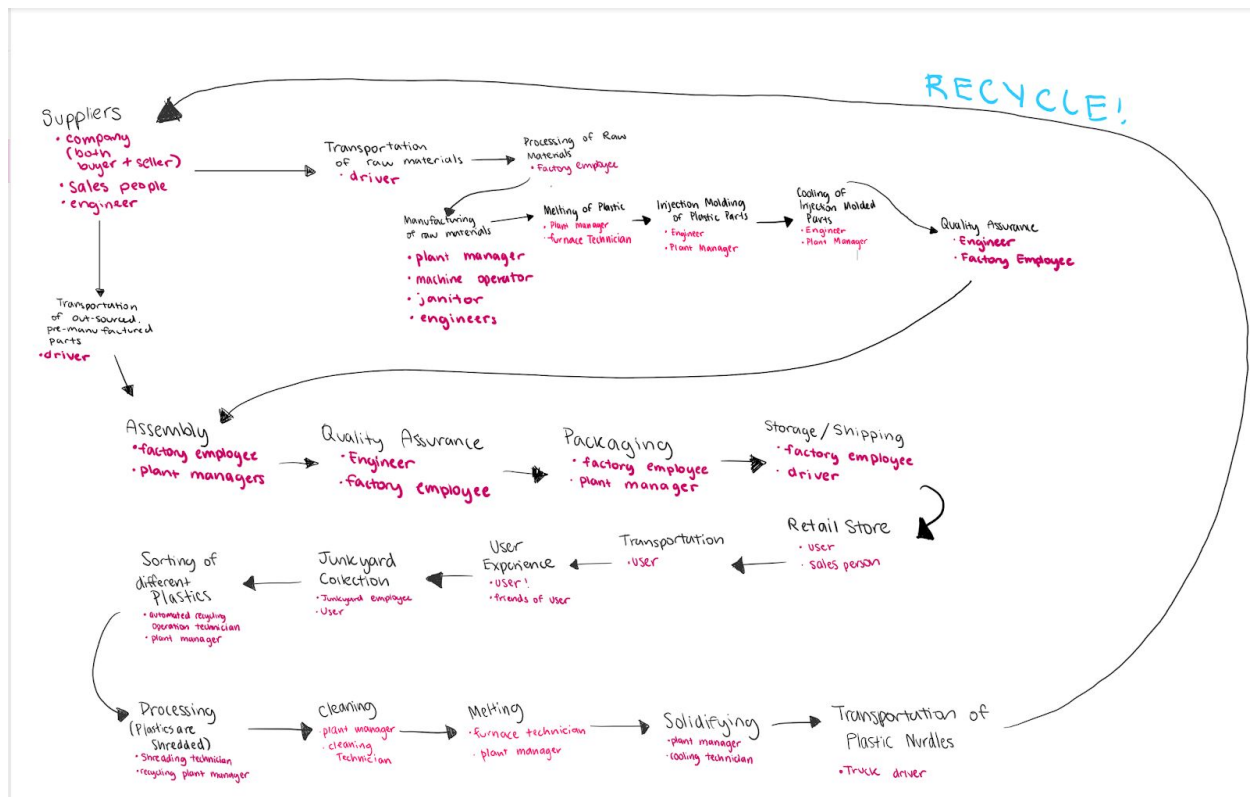 RECYCLE!
Suppliers
• company
(both
buyer + seller)
• sales people
• engineer
Transportation
of raw materials
• driver
Processing of Raw
Materials
• Factory employee
Manufacturing
of raw materials
• plant manager
• machine operator
• janitor
• engineers
Melting of Plastic
• Plant manager
• furnace Technician
Injection Molding
of Plastic Parts
• Engineer
• Plant Manager
Cooling of
Injection Molded
Parts
• Engineer
• Plant Manager
Quality Assurance
• Engineer
• Factory Employee
Transportation
of out-sourced,
pre-manufactured
parts
• driver
Assembly
• factory employee
• plant managers
Quality Assurance
• Engineer
• factory employee
Packaging
• factory employee
• plant manager
Storage/Shipping
• factory employee
• driver
Retail Store
• user
• sales person
Transportation
• user
User
Experience
• user!
• friends of user
Junkyard
Collection
• Junkyard employee
• User
Sorting of
different
Plastics
• automated recycling
operation technician
• plant manager
Processing
(Plastics are
Shredded)
• Shreading technician
• recycling plant manager
Cleaning
• plant manager
• cleaning
Technician
Melting
• furnace technician
• plant manager
Solidifying
• plant manager
• cooling technician
Transportation of
Plastic Nurdles
• Truck driver